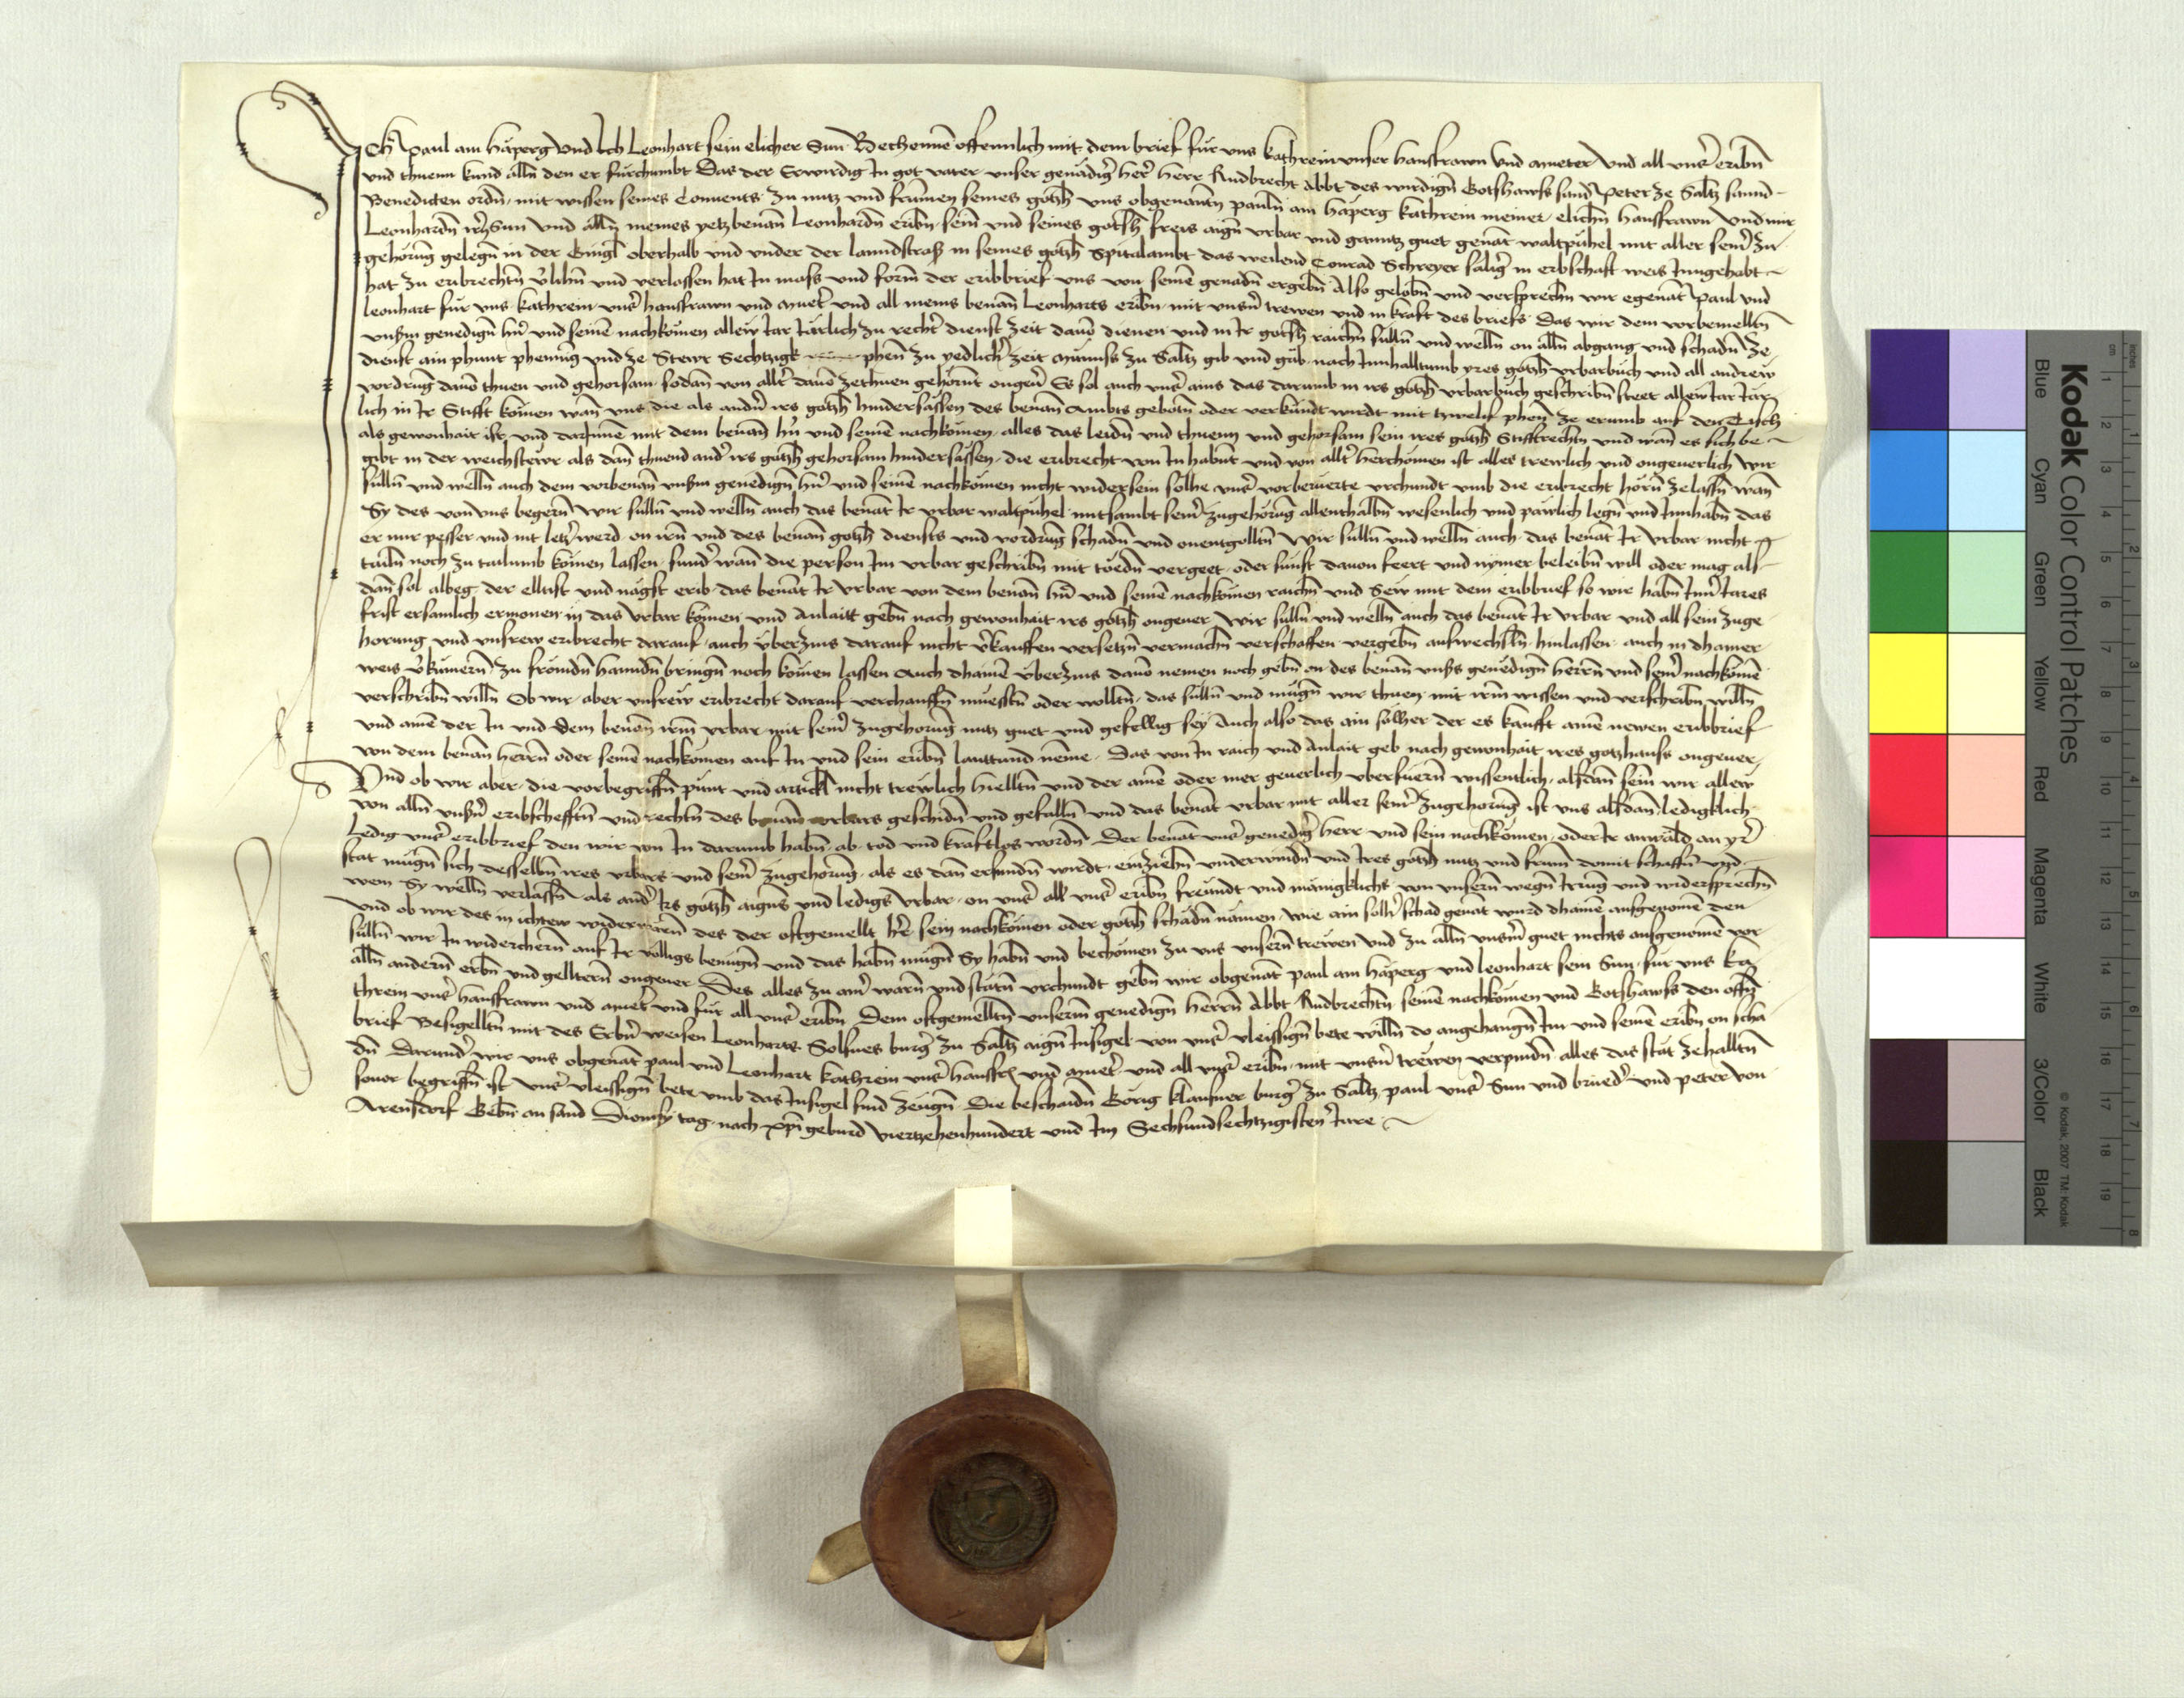 Ich Paul am Häperg und Ich Leonhart sein elicher Sun Bechennē offennlich mit dem brief für uns kathrein unser hausfrawn und ameter und all unsr̄ eribn̄
und thuenn kund alln̄ den er fürchumbt Das der Erwirdig In got vater unser genädigr̄ her̄ herr Rudbrecht Abbt des wirdign̄ Gotshawss sand Peter ze Saltzburg sannd
Benedicten ordn̄ mit wissen seines Conuents zu nutz und frumen seines gotzh uns obgenantn̄ pauln̄ am häperg kathrein meiner elichn̄ hausfrawn und mir
Leonhardn̄ irm̄ Sun und alln̄ meines yetzbenan̄ Leonhardn̄ eribn̄ sein und seines gotzh freis aign̄ urbar und ganntz guet genāt waltpühel mit aller seinr̄ zu
gehörūg gelegn̄ in der Gnigl oberhalb und under der lanndstrass in seines gotzh Spitalambt das weilend Conrad Schreyer säligr̄ in erbschaft weis Inngehabt
hat zu eribrechtn̄ v̄lihn̄ und verlassen hat In mass und form der eribbrief uns von seinē genadn̄ ergebn̄ Also gelobn̄ und versprechn̄ wir egenāt Paul und
leonhart für uns kathrein unsr̄ hausfrawn und ametr̄ und all meins benan̄ Leonharts eribn̄ mit unsn̄ trewen und in kraft des briefs Das wir dem vorbemelltn̄
unßm genedign̄ hn̄ und seinē nachkōmen allew Jar Järlich zu rechtr̄ dienst zeit dauō dienen und in Ir gotzh raichn̄ sulln̄ und welln̄ on alln̄ abgang und schadn̄ Ze
dienst ain phunt phennīg und ze Stewr Sechtzigk phen̄ zu yedlichr̄ zeit münnss zu Saltzburg gib und gäb nach Innhalltumb yres gotzh urbarbuch und all andrew
vordrūg dauō thuen und gehorsam sodan̄ von alltr̄ dauō zethuen gehörnt ongeur̄ Es sol auch unsr̄ ains das darumb in irs gotzh urbarbuch geschribn̄ steet allew Jar Jär
lich in Ir Stifft kōmen wan̄ uns die als andn̄ irs gotzh hindersassen des benan̄ Ambts gebotn̄ oder verkündt wirdt mit tzwelif phen̄ ze erumb auf den Tisch
als gewonhait ist und darinnē mit dem benan̄ hn̄ und seinē nachkōmen alles das leidn̄ und thuenn und gehorsam sein ires gotzh Stifftrechtn̄ und wan̄ es sich be
gibt in der weichstewr als dan̄ thuend andr̄ irs gotzh gehorsam hindersassen die eribrecht von In habn̄t und von alltr̄ herchomen ist alles trewlich und ongeuerlich Wir
sulln̄ und welln̄ auch dem vorbenan̄ unßm genedign̄ hn̄ und seinē nachkōmen nicht widersein solhe unsr̄ vorberuerte urchundt umb die eribrecht hörn̄ zelassn̄ wan̄
Sy des von uns begern̄ Wir sulln̄ und welln̄ auch das benāt Ir urbar waltpühel mitsambt seinr̄ zugehörūg allenthalbn̄ wesenlich und päwlich legn̄ und Innhabn̄ das
er nur pesser und nit letzr̄ werd on irn̄ und des benan̄ gotzh diensts und vordrūg schadn̄ und onentgolltn̄ Wir sulln̄ und welln̄ auch das benāt Ir Urbar nicht
tailn̄ noch zu tailumb kōmen lassen sundr̄ wan̄ die person Im urbar geschribn̄ mit töedn̄ vergeet oder sunst dauon feert und nymer beleibn̄ will oder mag als
dan̄ sol albeg der elltist und nägst erib das benāt Ir urbar von dem benan̄ hn̄ und seinē nachkōmen raichn̄ und Sew mit dem eribbrief so wir habn̄ Innr̄ Jares
frist ersamlich ermonen in das Urbar kōmen und Anlaitt gebn̄ nach gewonhait irs gotzh ongeuer Wir sulln̄ und welln̄ auch das benāt Ir urbar und all sein zuge
horung und unsrew eribrecht darauf auch überzins darauf nicht v̄kauffen versetzn̄ vermachn̄ verschaffen vergebn̄ aufwechsln̄ hinlassen auch in dhainer
weis v̄kümern̄ zu frömdn̄ hanndn̄ bringn̄ noch kōmen lassen Auch dhainē überzins dauō nemen noch gebn̄ on des benan̄ unßs genedign̄ herrn̄ und seinr̄ nachkōmē
verschribn̄ willn̄ Ob wir aber unsrew eribrecht darauf verchauffn̄ müesstn̄ oder wolltn̄ das sulln̄ und mügn̄ wir thuen mit irm̄ wissen und verschribn̄ willn̄
und ainē der In und dem benan̄ irm̄ urbar mit seinr̄ zugehörūg nutz guet und gefellig sey Auch also das ain solher der es kaufft ainē newen eribbrief
von dem benan̄ herrn̄ oder seinē nachkōmen auf In und sein eribn̄ lauttund nēme Das von In raich und Anlait geb nach gewonhait ires gotzhauss ongeuer
Und ob wir aber die vorbegriffn̄ punt und artickl nicht trewlich hielltn̄ und der ainē oder mer geuerlich uberfuern̄ wissentlich alsdan̄ sein wir allew
von alln̄ unßn̄ eribschefftn̄ und rechtn̄ des benan̄ urbars geschidn̄ und gefalln̄ und das benāt urbar mit aller seinr̄ zugehorūg ist uns alsdan̄ ledigklich
Ledig unsr̄ eribbrief den wir von In darumb habn̄ ab tod und kraftlos wordn̄ Der benāt unsr̄ genedigr̄ herr und sein nachkōmen oder Ir anwäld an yr̄
stat mügn̄ sich desselbn̄ ires urbars und seinr̄ zugehorūg als es dan̄ erfundn̄ wirdt einziehn̄ underwindn̄ und Ires gotzh nutz und frum̄ domit schaffn̄ und
wem Sy welln̄ verlassn̄ als andr̄ Irs gotzh aigens und ledigs Urbar on unsr̄ all unsr̄ eribn̄ freundt und mänigklichs von unsern wegn̄ Irrūg und widersprechn̄
Und ob wir des in ichtew widerwärn̄ des der oftgemellt hr̄ sein nachkōmen oder gotzh schadn̄ nämen wie ain solhr̄ schad genāt wurd dhainē ausgenomē den
sulln̄ wir In widerchern̄ auf Ir völligs benügn̄ und das habn̄ mügn̄ Sy habn̄ und bechomen zu uns unsern trewen und zu alln̄ unsm̄ guet nichts ausgenomē vor
alln̄ andern̄ erbn̄ und gelltern̄ ongeuer Des alles zu ainr̄ warn̄ und stätn̄ urchundt gebn̄ wir obgenāt paul am häperg und leonhart sein Sun für uns ka
threin unsr̄ hausfrawn und ametr̄ und für all unsr̄ eribn̄ Dem oftgemelltn̄ unserm genedign̄ herrn̄ Abbt Rudbrechtn̄ seinē nachkōmen und Gotshawss den offn̄
brief Besigelltn̄ mit des Erbn̄ weisen Leonharts Solsues burgr̄ zu Saltzburg aign̄ Insigel von unsr̄ vleissign̄ bete willn̄ do angehangn̄ Im und seinē eribn̄ on scha
dn̄ Darundr̄ wir uns obgenāt paul und Leonhart kathrein unsr̄ hausfr und ametr̄ und all unsr̄ eribn̄ mit unsn̄ trewen verpindn̄ alles das stät zehalltn̄
souor begriffn̄ ist unsr̄ vleissign̄ bete umb das Insigel sind zeugn̄ Die beschaidn̄ Görig klausner burgr̄ zu Saltzburg paul unsr̄ Sun und bruedr̄ und peter von
Arensdorf Gebn̄ an sand Dionisy tag nach xp̄i geburd Viertzehenhundert und Im Sechsundsechtzigisten Jare
Kodak Color Control Patches
Blue Cyan Green Yellow Red Magenta White 3/Color Black
© Kodak, 2007 TM: Kodak
cm 1 2 3 4 5 6 7 8 9 10 11 12 13 14 15 16 17 18 19
inches 1 2 3 4 5 6 7 8